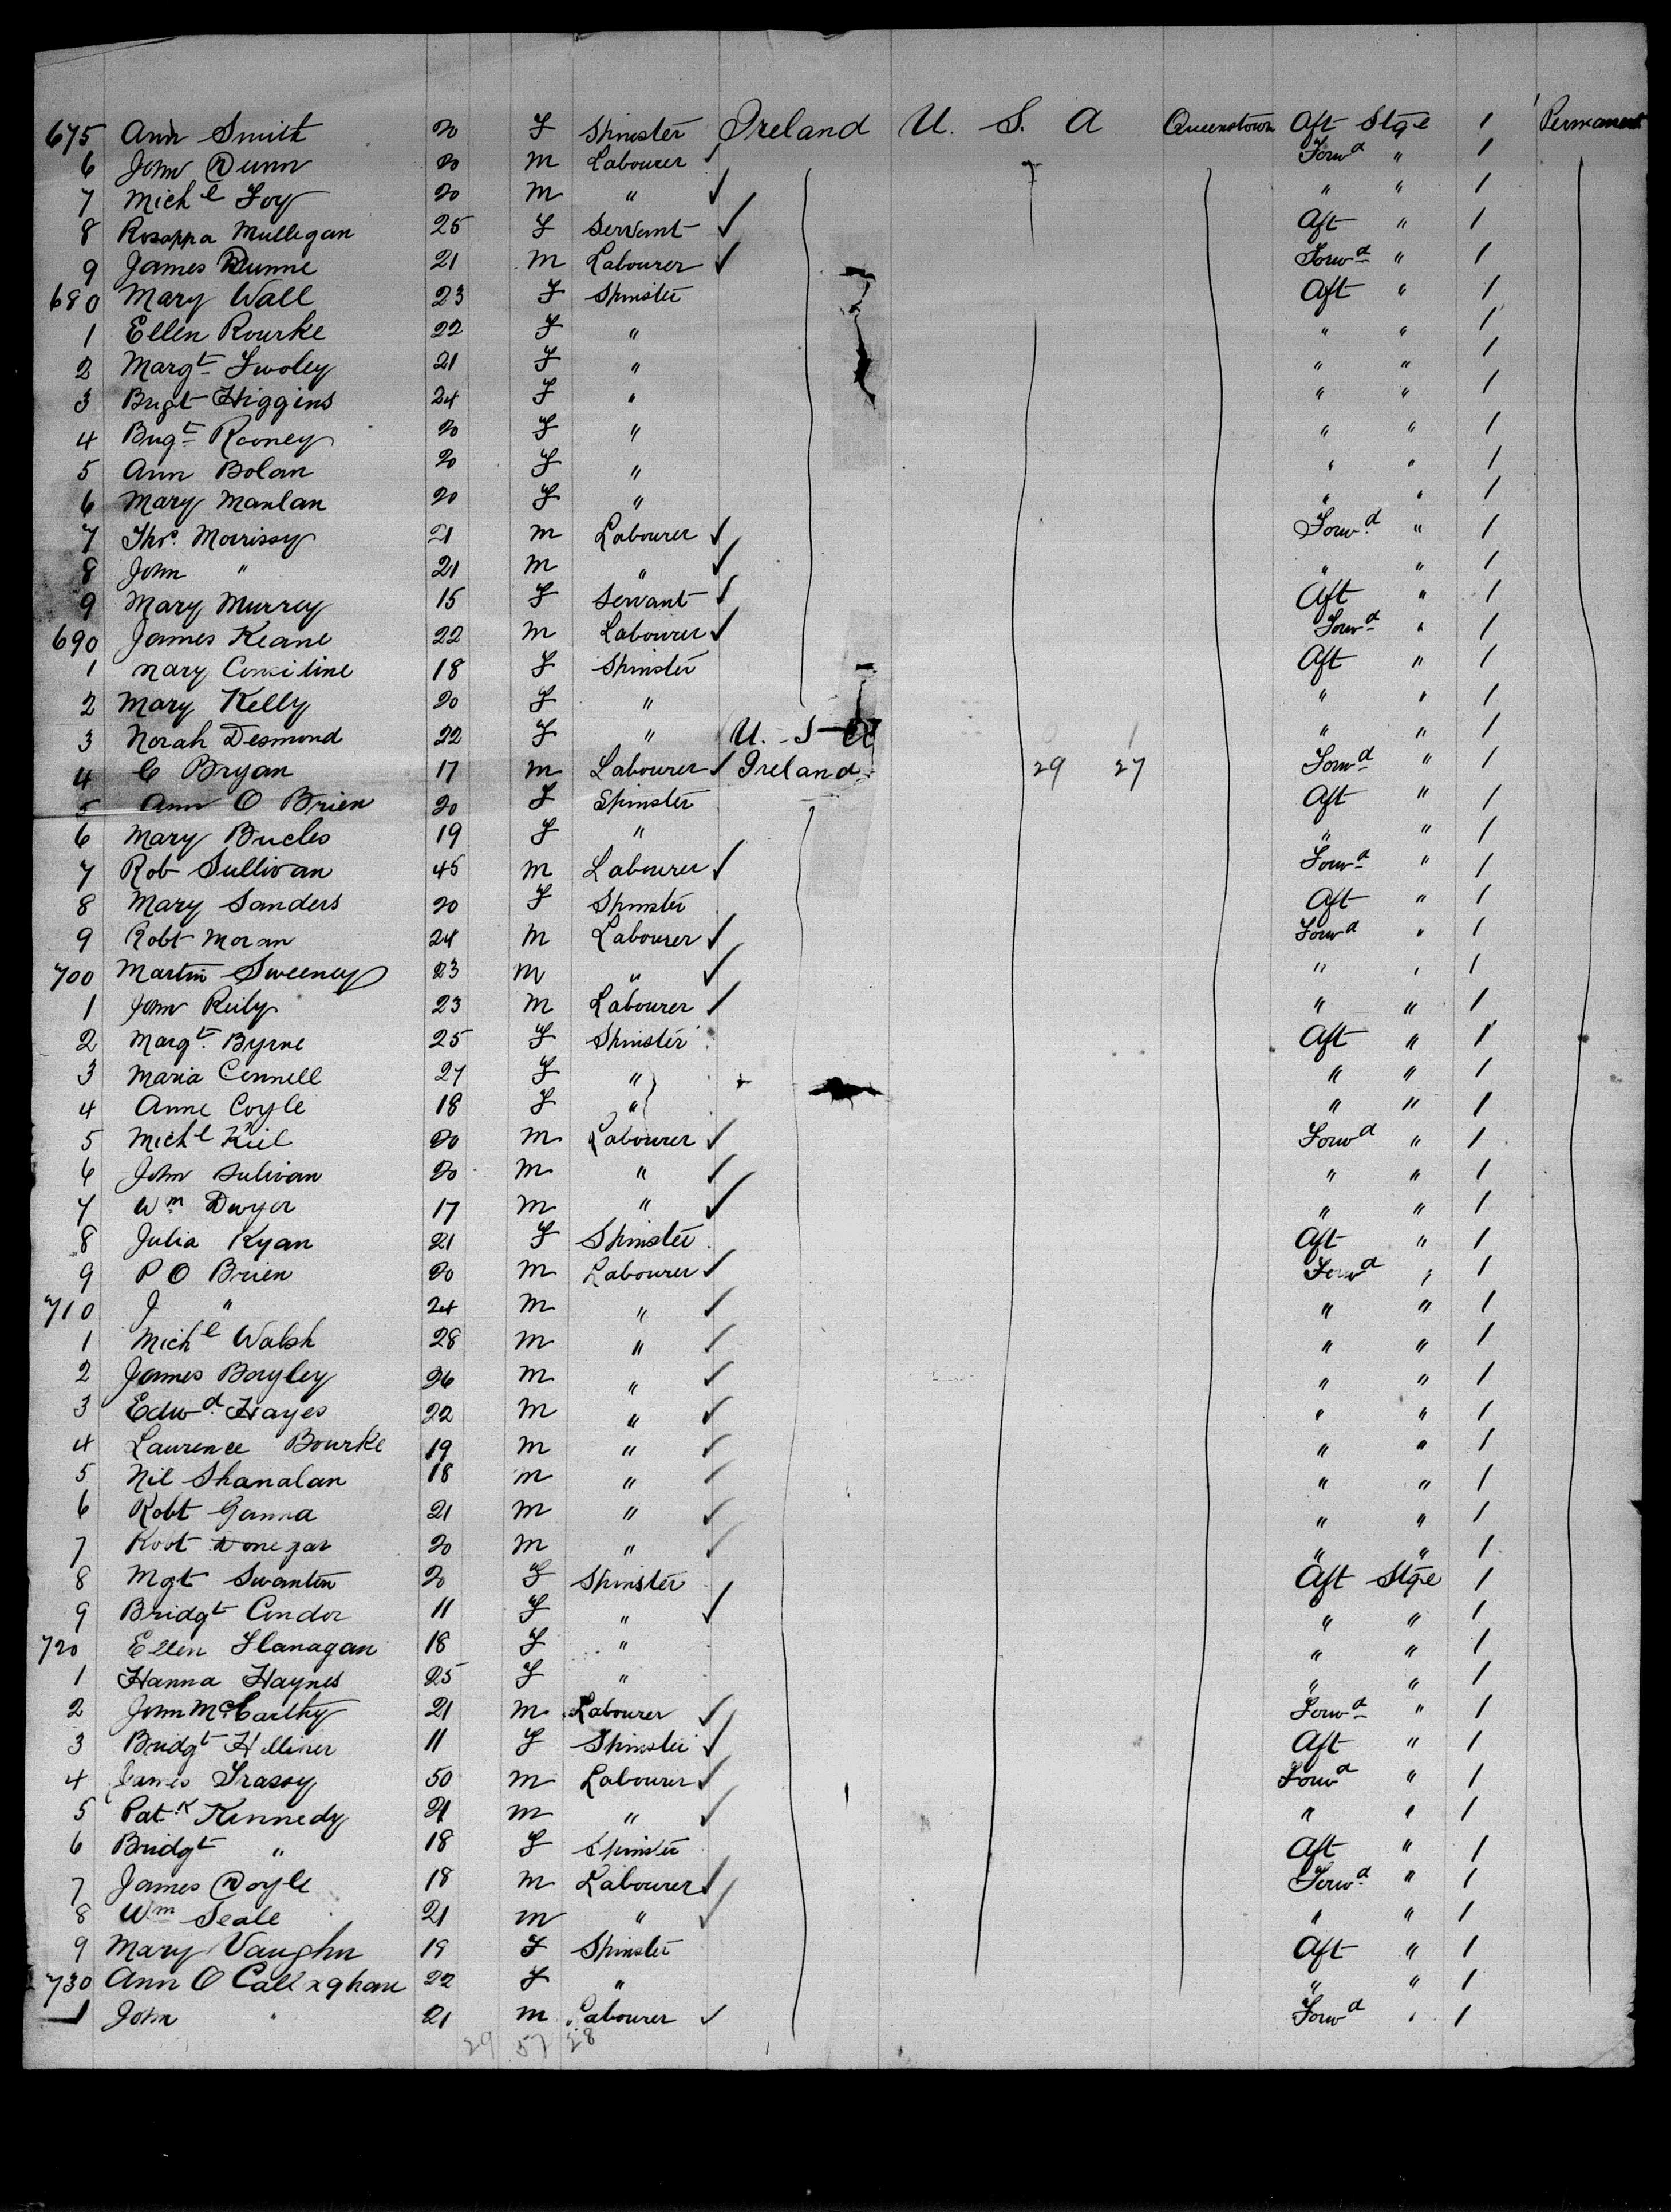 675 Ann Smith 20 F Spinster Ireland U. S. A Queenstown Aft Stge 1 Permanent
6 John Dunn 20 M Labourer ✓ Forwd " 1
7 Michl Foy 20 M " ✓ " " 1
8 Rosanna Mullegan 25 F Servant ✓ Aft " 1
9 James Dunne 21 M Labourer ✓ Forwd " 1
680 Mary Wall 23 F Spinster Aft " 1
1 Ellen Rourke 22 F " " " 1
2 Margt 21 F " " " 1
3 Brigt Higgins 24 F " " " 1
4 Brigt Rooney 20 F " " " 1
5 Ann Bolan 20 F " " " 1
6 Mary Manlan 20 F " " " 1
7 Thos. Morrissy 21 M Labourer ✓ Forwd " 1
8 John " 21 M " ✓ " " 1
9 Mary Murrey 15 F Servant ✓ Aft " 1
690 James Keane 22 M Labourer ✓ Forwd " 1
1 Mary Consitine 18 F Spinster Aft " 1
2 Mary Kelly 20 F " " " 1
3 Norah Desmond 22 F " U. S " " 1
4 C Bryan 17 M Labourer ✓ Ireland 29 27 Forwd " 1
5 Ann O Brien 20 F Spinster Aft " 1
6 Mary Bucles 19 F " " " 1
7 Rob Sullivan 45 M Labourer ✓ Forwd " 1
8 Mary Sanders 20 F Spinster Aft " 1
9 Robt Moran 24 M Labourer ✓ Forwd " 1
700 Martin Sweeney 23 M " ✓ " " 1
1 John Reily 23 M Labourer ✓ " " 1
2 Margt. Byrne 25 F Spinster Aft " 1
3 Maria Connell 27 F " " " 1
4 Anne Coyle 18 F " " " 1
5 Michl Kiel 20 M Labourer ✓ Forwd " 1
6 John Sulivan 20 M " ✓ " " 1
7 Wm Dwyer 17 M " ✓ " " 1
8 Julia Ryan 21 F Spinster Aft " 1
9 P O Brien 20 M Labourer ✓ Forwd " 1
710 J " 24 M " ✓ " " 1
1 Michl Walsh 28 M " ✓ " " 1
2 James Bayley 26 M " ✓ " " 1
3 Edwd. Hayes 22 M " ✓ " " 1
4 Laurence Bourke 19 M " ✓ " " 1
5 Nil Shanalan 18 M " ✓ " " 1
6 Robt Ganna 21 M " ✓ " " 1
7 Robt Donegar 20 M " ✓ " " 1
8 Mgt Swanton 20 F Spinster Aft Stge 1
9 Bridgt Condor 11 F " ✓ " " 1
720 Ellen Flanagan 18 F " " " 1
1 Hanna Haynes 25 F " " " 1
2 John McCarthy 21 M Labourer ✓ Forwd " 1
3 Bridgt 11 F Spinster ✓ Aft " 1
4 James 50 M Labourer ✓ Forwd " 1
5 Patk Kennedy 21 M " ✓ " " 1
6 Bridgt " 18 F Spinster Aft " 1
7 James Doyle 18 M Labourer ✓ Forwd " 1
8 Wm Seale 21 M " ✓ " " 1
9 Mary Vaughn 19 F Spinster Aft " 1
730 Ann O Callaghan 22 F " " " 1
1 John " 21 M Labourer ✓ Forwd " 1
29 57 28